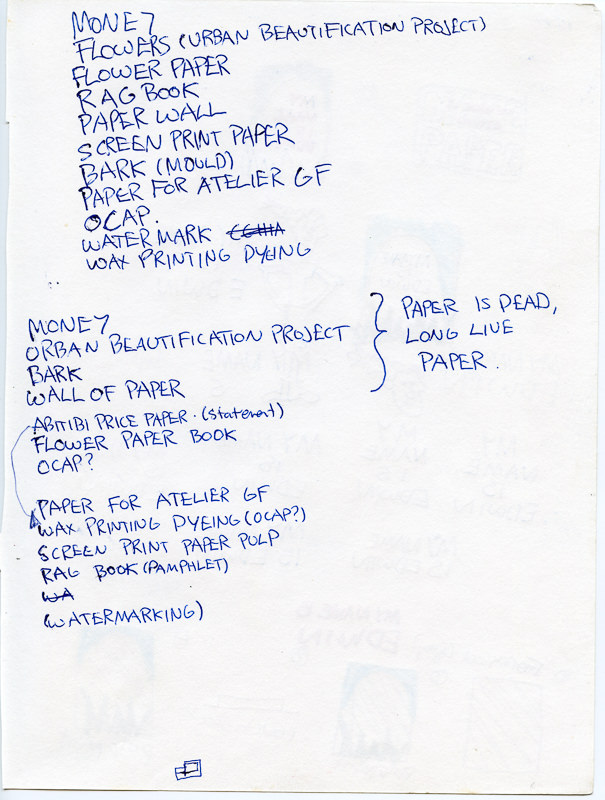 MONEY
FLOWERS (URBAN BEAUTIFICATION PROJECT)
FLOWER PAPER
RAG BOOK
PAPER WALL
SCREEN PRINT PAPER
BARK (MOULD)
PAPER FOR ATELIER GF
OCAP.
WATERMARK
WAX PRINTING DYEING
MONEY
URBAN BEAUTIFICATION PROJECT
BARK
WALL OF PAPER
PAPER IS DEAD,
LONG LIVE
PAPER.
ABITIBI PRICE PAPER. (Statement)
FLOWER PAPER BOOK
OCAP?
PAPER FOR ATELIER GF
WAX PRINTING DYEING (OCAP?)
SCREEN PRINT PAPER PULP
RAG BOOK (PAMPHLET)
WA
(WATERMARKING)